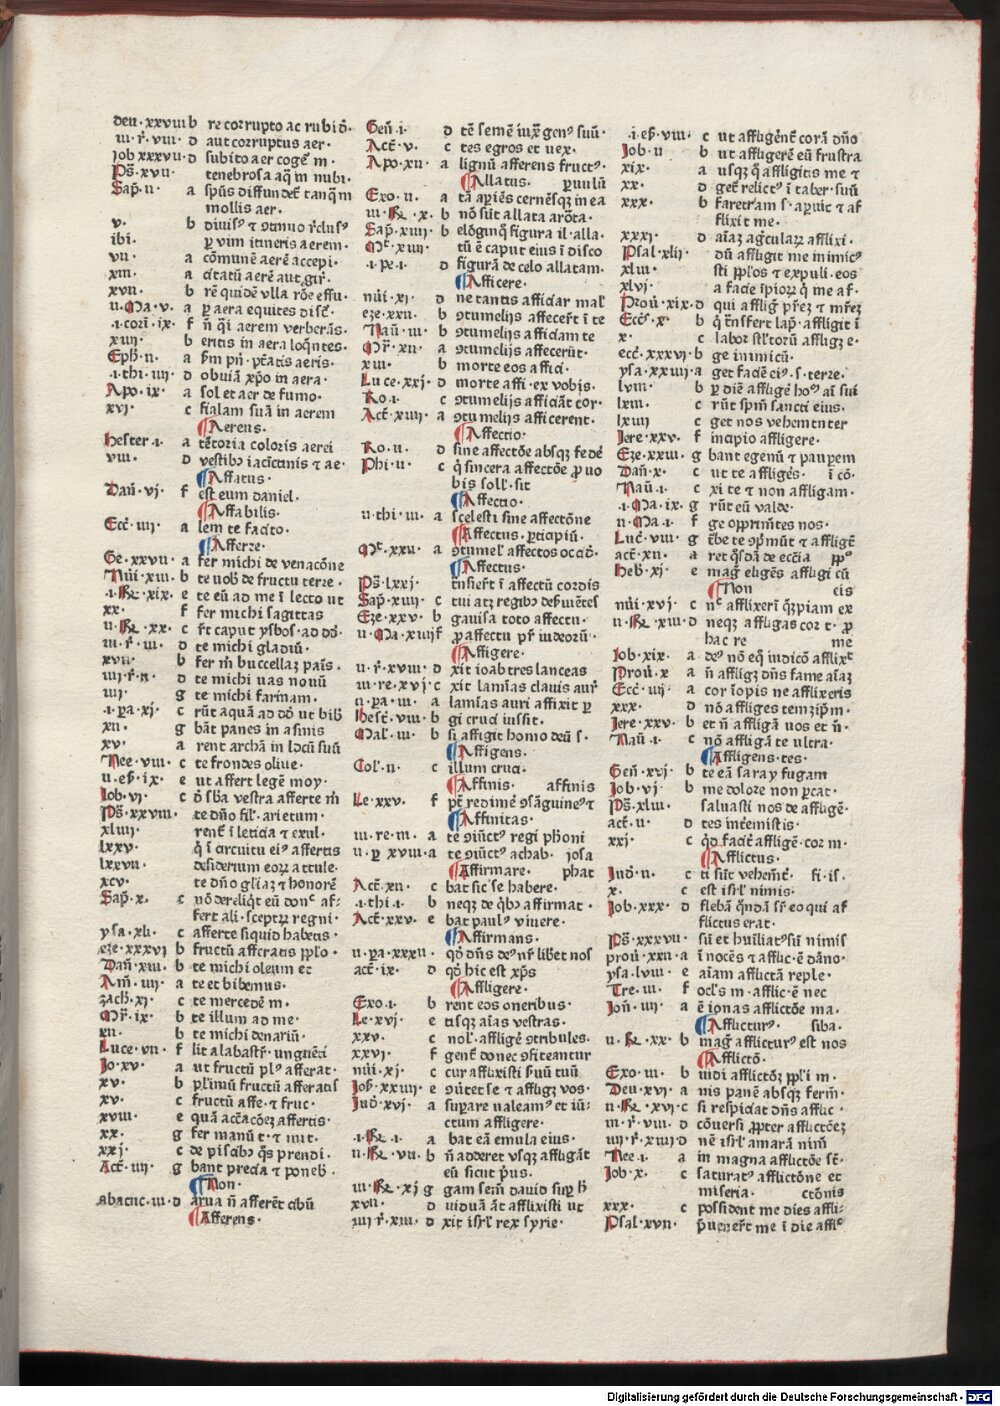 deu · xxviii b re corrupto ac rubiď ·
iii · r̄ · viii · d aut corruptus aer ·
Job xxxvii · d subito aer cogēt in ·
Ps̄ · xvii · tenebrosa aq̄ in nubi ·
Sap̄ · ii · a sp̄us diffundet tanq̄m
mollis aer ·
v · b
ibi · ꝑ vim itineris aerem ·
vii · a cōmunē aerē accepi ·
xiii · a
xvii · b rē quidē vlla
ii · Ma · v · a ꝑ aera equites
·i · cori · ix · f n̄ q̄i aerem verberās ·
xiiii · b eritis in aera loq̄ntes ·
Eph · ii · a
·i · thi · iiii · d obuiā xp̄o in aera ·
Apo · ix · a sol et aer de fumo ·
xvi · c fialam suā in aerem
Aereus ·
hester · i · a coloris aerei
viii · d iacictinis ⁊ ae ·
Affatus ·
Dan̄ · vi · f est eum daniel ·
Affabilis ·
Ecc̄ · iiii · a lem te facito ·
Afferre ·
Ge · xxvii · a fer michi de venacōne
Nūi · xiii · b te uob̄ de fructu terre ·
·i · Re · xix · e te eū ad me ī lecto ut
xx · f fer michi sagittas
ii · Re · xx · c
iii · r̄ · iii · d te michi gladiū ·
xvii · b fer m̄ buccellaʒ pais ·
iiii r̄ · ii · d te michi uas nouū
iiii · g te michi farinam ·
·i · ꝑa · xi · c rūt aquā ad
xii · g bāt panes in asinis
xv · a rent archā in locū suū
Nee · viii · c te frondes oliue ·
ii · eſ · ix · e ut affert legē moy ·
Job · vi · c vestra afferte m̄
Ps̄ · xxviii · te dn̄o fil · arietum ·
xliiii · ī leticia ⁊ exul ·
lxxv · q̄ ī circuitu ei⁹ affertis
lxxvii · desiderium eoꝝ attule ·
xcv · te dn̄o gl̄iaʒ ⁊ honorē
Sap̄ · x · c
fert ali · sceptꝝ regni ·
ysa · xli · c afferte siquid habetis ·
eze · xxxvi b fructū afferatis
Dan̄ · xiii · b te michi oleum et
Am̄ · iiii · a te et bibemus ·
zach · xi · c te mercedē m ·
Mr̄ · ix · b te illum ad me ·
xii · b te michi denariū ·
Luce · vii · f
Jo · xv · a ut fructū pl⁹ afferat ·
xv · b pl'imū fructū afferatis
xv · c fructū affe · ⁊ fruc ·
xviii · e affertis ·
xx · g fer manū t · ⁊ mit ·
xxi · c de piscib⁹ q̄s prendi ·
Act̄ · iiii · g bant precia ⁊ poneb ·
Non ·
abacuc · iii · d arua n̄ afferēt cibū
Afferens ·
Gen̄ · i · d tē semē iuxͣ gen⁹ suū ·
Act̄ · v · c tes egros et uex ·
Apo · xii · a lignū afferens fruct⁹ ·
Allatus · ꝑuulū
Exo · ii · a
iii · Re · x · b nō sūt allata arōta ·
Sap̄ · xiiii · b figura il · alla ·
Mt̄ · xiiii · tū ē caput eius ī disco
·i · pe · i · d figurā de celo allatam ·
Afficere ·
nūi · xi · d ne tantis afficiar mal'
eze · xxii · b ꝯtumeliis affecer̄t ī te
Naū · iii · b ꝯtumeliis afficiam te
Mr̄ · xii · a ꝯtumeliis affecerūt ·
xiii · b morte eos affici ·
Luce · xxi · d morte affi · ex vobis ·
Ro · i · c ꝯtumeliis afficiāt cor ·
Act̄ · xiiii · a ꝯtumeliis afficerent ·
Affectio ·
Ro · ii · d sine affectōe absqʒ
Phi · ii · c q̄ sincera affectōe ꝑ uo
bis soll' · sit
Affectio ·
ii · thi · iii · a scelesti sine affectōne
Affectus · ꝑticipiū ·
Mt̄ · xxii · a ꝯtumel' affectos
Affectus ·
Ps̄ · lxxi · ī affectū cordis
Sap̄ · xiiii · c tui atqʒ regib⁹
Eze · xxv · b gauisa toto affectu ·
ii · Ma · xiiii f ꝓ affectu
Affigere ·
ii · r̄ · xviii · d xit ioab tres lanceas
iii · re · xvi · c xit lamīas clauis
ii · ꝑa · iii · a lamīas auri affixit ꝑ
Hest̄ · viii · b gi cruci iussit ·
Mal' · iii · b si affigit homo deū s ·
Affigens ·
Col' · ii · c illum cruci ·
Affinis · affinis
Le · xxv · f
Affinitas ·
iii · re · iii · a te ꝯiūct⁹ regi pharoni
ii · ꝑ xviii · a te ꝯiūct⁹ achab · josa
Affirmare · phat
Act̄ · xii · c bat sic se habere ·
·i · thi · i · b neqʒ de q̄b⁹ affirmat ·
Act̄ · xxv · e bat paul⁹ viuere ·
Affirmans ·
ii · ꝑa · xxxii · q̄ dn̄s de⁹ nr̄ libet nos
act̄ · ix · d hic est xp̄s
Affligere ·
Exo · i · b rent eos oneribus ·
Le · xvi · e tisqʒ aīas vestras ·
xxv · c nol' · affligē ꝯtribules ·
xxvi · f gent̄ donec ꝯfiteantur
nūi · xi · c cur afflixisti ẜuū tuū
Job̄ · xxxvii · e affligʒ vos ·
Jud̄ · xvi · a supare ualeam⁹ et iū⸗
ctum affligere ·
·i · Re · i · a bat eā emula eius ·
ii · Re · vii · b n̄ adderet vsqʒ affligāt
eū sicut p̄us ·
iii · Re · xi g gam sem̄ dauid sup h̄
xvii · d viduā āt afflixisti ut
iiii r̄ · xiii · d xit isrl' rex syrie ·
·i · eſ · viii · c ut affligēnt̄ corā dn̄o
Job · ii · b ut affligerē eū frustra
xix · a usqʒ q̄ affligitis me ⁊
xx · d get̄ relict⁹ ī taber · suū
xxx · b faretrām s · aꝑuit ⁊ af
flixit me ·
xxxi · d aīaʒ ag̓culaꝝ afflixi ·
Psal · xlii · dū affligit me inimic⁹
xliii · sti ppl'os ⁊ expuli · eos
xlvi · a facie ip̄ioꝝ q̄ me af ·
Prou · xix · d qui affligit
Ecc̄s · x · b lap · affligit ī
x · c labor stl'torū affligʒ e ·
ecc̄ · xxxvi · b ge inimicū ·
ysa · xxiiii · a get faciē ei⁹ · s · terre ·
lviii · b ꝑ diē affligē ho⁹ aī sui
lxiii · c rūt spm̄ sancti eius ·
lxiiii c get nos vehementer
Jere · xxv · f incipio affligere ·
Eze · xxiii · g bant egenū ⁊ pauꝑem
Dan̄ · x · c ut te affligēs · ī cō ·
Naū · i · c xi te ⁊ non affligam ·
·i · Ma · ix · g rūt eū valde ·
ii · Ma · i · f ge opprim̄tes nos ·
Luc̄ · viii · g
act̄ · xii · a ret q̄sdā de eccīa
Heb̄ · xi · e mag̓ eligēs affligi cū
Non eis
nūi · xvi · c afflixerī q̄ʒpiam ex
ii · Re · xiii · d neqʒ affligas cor t · ꝑ
hac re me
Job · xix · a de⁹ nō eq̄ iudicō afflixͭ
Prou · x a n̄ affligʒ dn̄s fame aīaʒ
Ecc̄ · iiii · a cor īopis ne afflixeris
xxx · d nō affliges
Jere · xxv · b et n̄ affligā uos et n̄ ·
Naū · i · c nō affligā te ultra ·
Affligens · tes ·
Gen̄ · xvi · b te eā saray fugam
Job · vi · b me dolore non parcat ·
Ps̄ · xliii · saluasti nos de affligē ·
act̄ · ii · d
xxi · c affligē · cor m ·
Afflictus ·
Jud̄ · ii · c ti sūt vehem̄t · fi · is ·
x · c est isrl' nimis ·
Job · xxx · d flebā q̄ndā sr̄ eo qui af
flictus erat ·
Ps̄ · xxxvii · sū et huīliat⁹ sū nimis
prou · xxii · a ī nocēs ⁊ afflic · ē dāno ·
ysa · lviii · e aīam afflictā reple ·
Tre · iii · f ocl's m · afflic · ē nec
Jon̄ · iiii · a ē ionas afflictōe ma ·
Afflictur⁹ · siba ·
ii · Re · xx · b mag̓ afflictur⁹ est nos
Afflictō ·
Exo · iii · b uidi afflictōʒ ppl'i m ·
Deu · xvi · a nis panē absqʒ ferm̄ ·
ii · Re · xvi · c si respiciat dn̄s afflic ·
iii · r̄ · viii · d cōuersi ꝓpter afflictōeʒ
iiii r̄ · xiiii d nē isrl' amarā nim̄
Nee · i · a in magna afflictōe st̄ ·
Job · x · c saturat⁹ afflictōne et
miseria · ctōnis
xxx · c possident me dies affli⸗
Psal · xvii · p̄uener̄t me ī die afflic̄
Digitalisierung gefördert durch die Deutsche Forschungsgemeinschaft - DFG